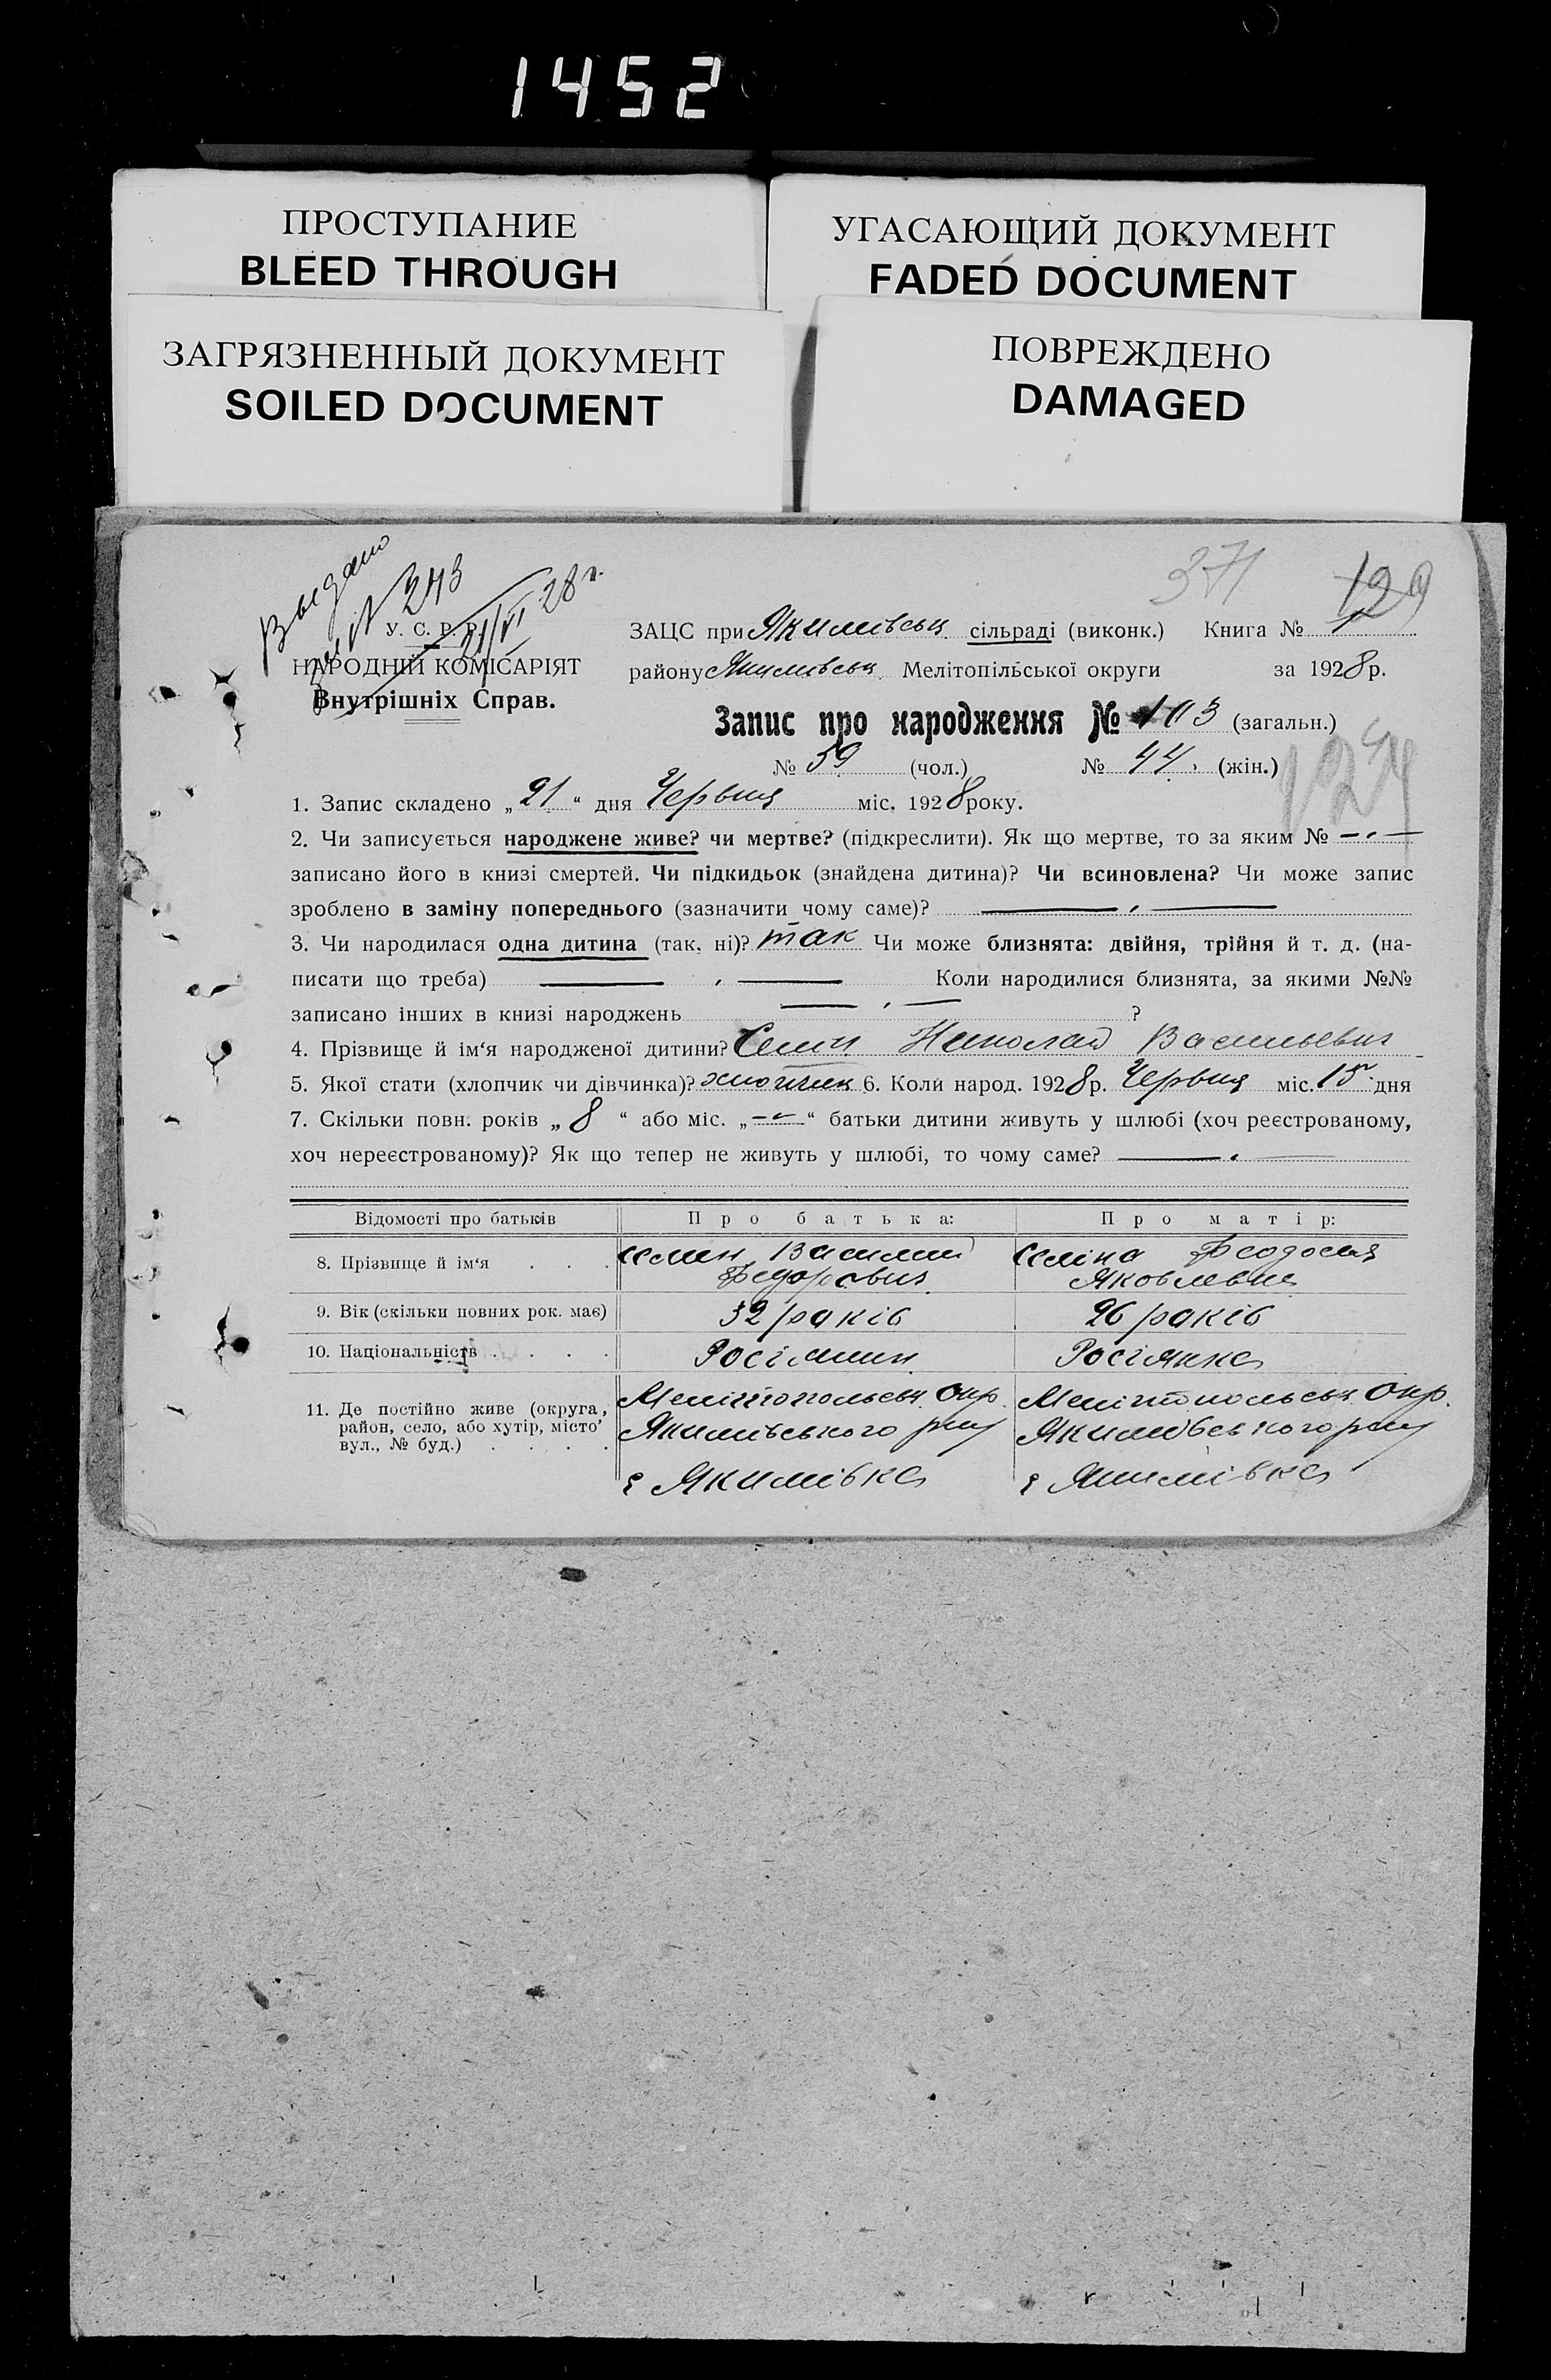 1452
ПРОСТУПАНИЕ
BLEED THROUGH
УГАСАЮЩИЙ ДОКУМЕНТ
FADED DOCUMENT
ЗАГРЯЗНЕННЫЙ ДОКУМЕНТ
SOILED DOCUMENT
ПОВРЕЖДЕНО
DAMAGED
Выдано
№ 243
21/VI 28 г.
371
У. С. Р. Р.
НАРОДНІЙ КОМІСАРІЯТ
Внутрішніх Справ.
ЗАЦС при Якимівськ. сільраді (виконк.) Книга №
району Якимівськ. Мелітопільської округи за 1928 р.
Запис про народження № 103 (загальн.)
№ 59 (чол.) № 44. (жін.)
1. Запис складено „21“ дня Червня міс. 1928 року.
2. Чи записується народжене живе? чи мертве? (підкреслити). Як що мертве, то за яким № —„—
записано його в книзі смертей. Чи підкидьок (знайдена дитина)? Чи всиновлена? Чи може запис
зроблено в заміну попереднього (зазначити чому саме)? —„—
3. Чи народилася одна дитина (так, ні)? так Чи може близнята: двійня, трійня й т. д. (на-
писати що треба) —„— Коли народилися близнята, за якими №№
записано інших в книзі народжень —„— ?
4. Прізвище й ім‘я народженої дитини? Селин Николай Васильевич
5. Якої стати (хлопчик чи дівчинка)? хлопчик 6. Коли народ. 1928 р. Червня міс. 15 дня
7. Скільки повн. років „8“ або міс. „—„—“ батьки дитини живуть у шлюбі (хоч реєстрованому,
хоч нереєстрованому)? Як що тепер не живуть у шлюбі, то чому саме? —„—
Відомості про батьків Про батька: Про матір:
8. Прізвище й ім‘я . . . Селин Василий Селіна Феодосия
Федорович Яковлевна
9. Вік (скільки повних рок. має) 32 років 26 років
10. Національність . . . . Росіянин Росіянка
11. Де постійно живе (округа, Мелітопольськ. Окр. Мелітопольськ. Окр.
район, село, або хутір, місто’ Якимівського р-ну Якимівського р-ну
вул., № буд.) . . . . с Якимівка с Якимівка